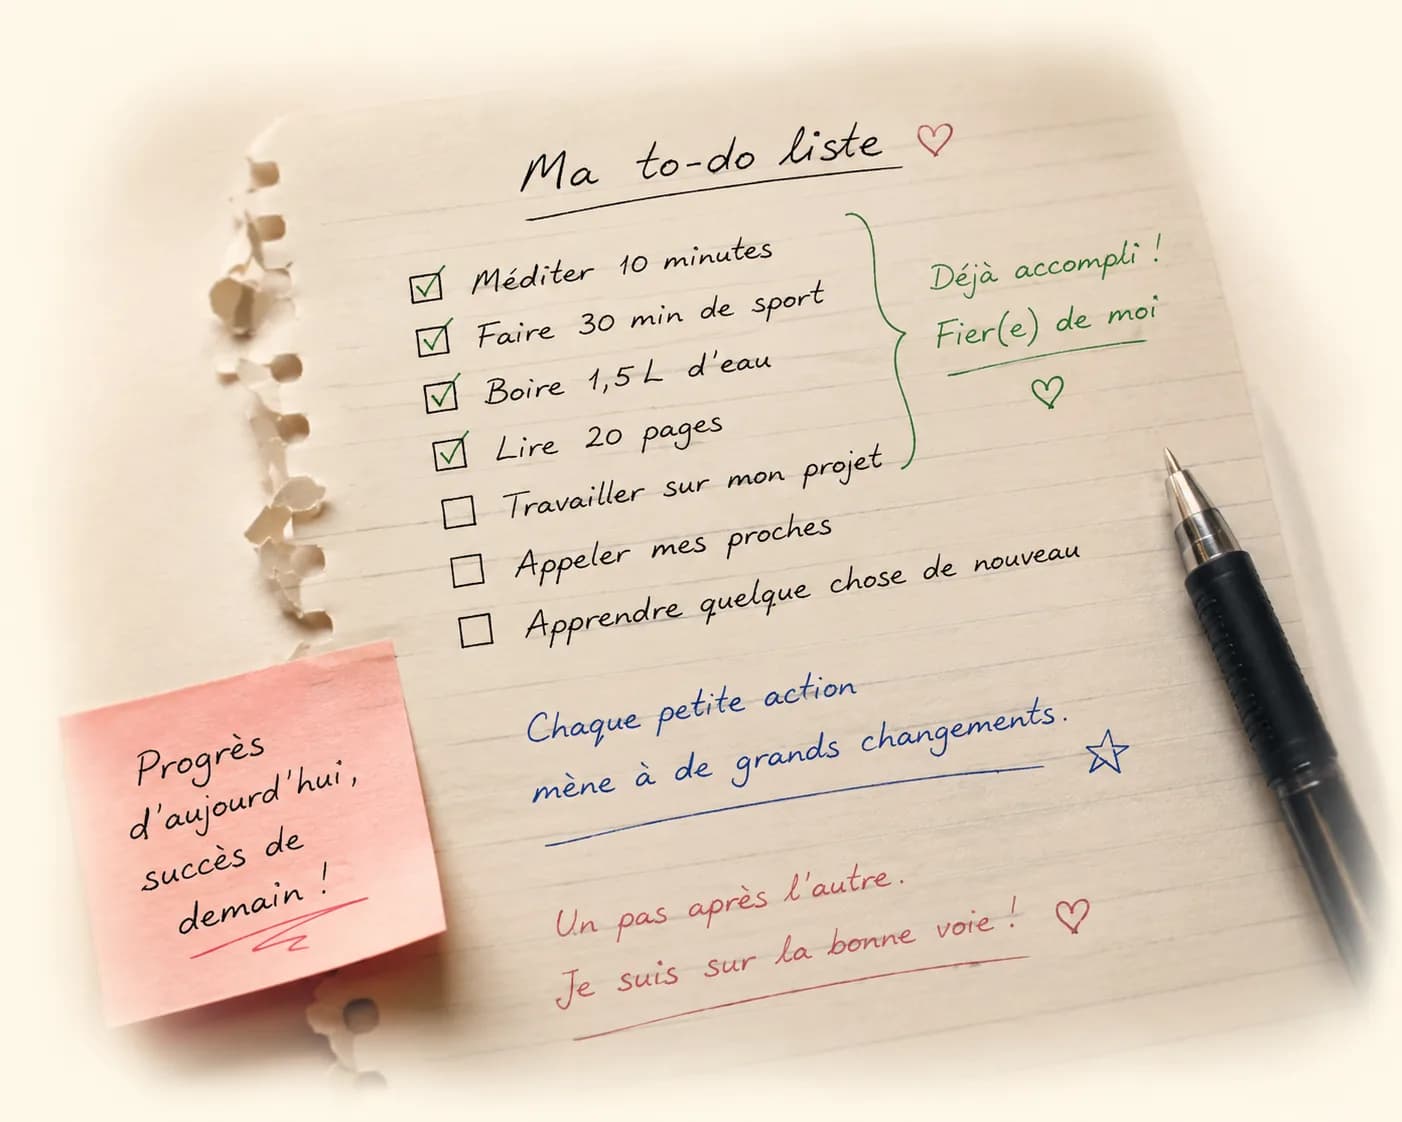 Ma to-do liste
Méditer 10 minutes
Faire 30 min de sport
Boire 1,5 L d'eau
Lire 20 pages
Travailler sur mon projet
Appeler mes proches
Apprendre quelque chose de nouveau
Déjà accompli !
Fier(e) de moi
Chaque petite action
mène à de grands changements.
Un pas après l'autre.
Je suis sur la bonne voie !
Progrès
d'aujourd'hui,
succès de
demain !